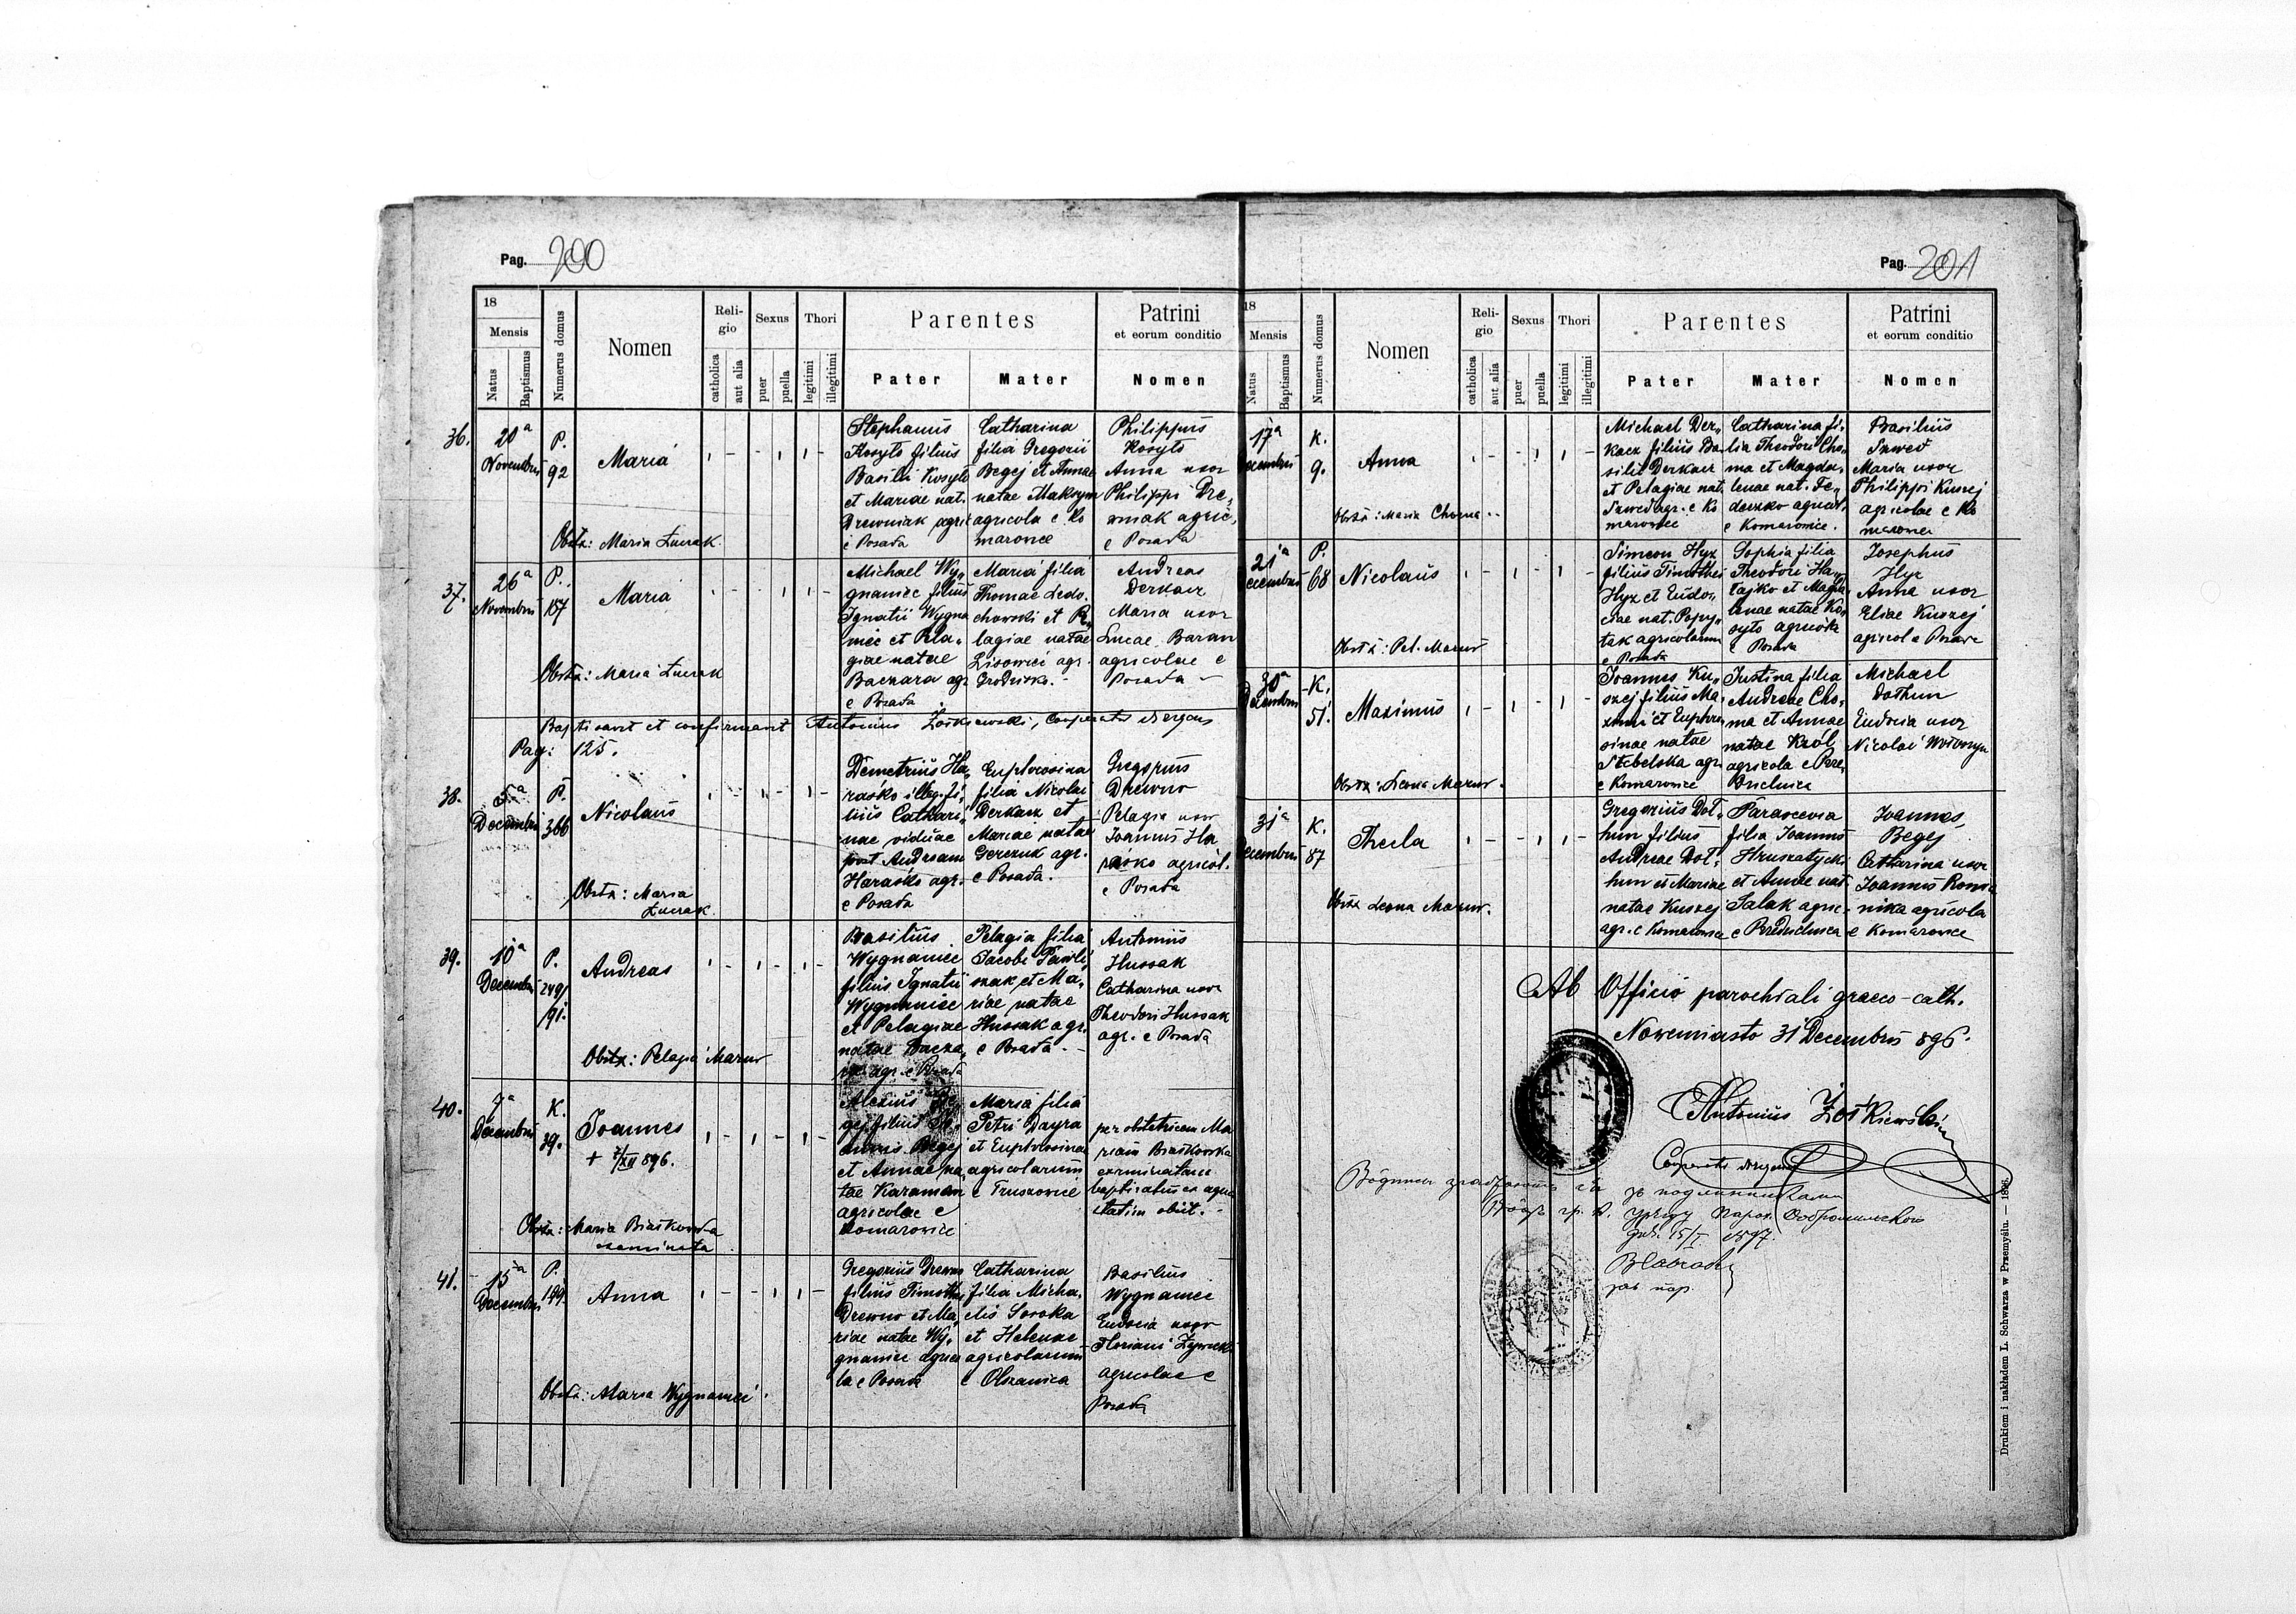 Pag. 200
18
Mensis
Natus
Baptismus
Numerus domus
Nomen
Religio
catholica
aut alia
Sexus
puer
puella
Thori
legitimi
illegitimi
Parentes
Pater
Mater
Patrini
et eorum conditio
Nomen
36.
20ª
Novembris
P.
92
Maria
Obstx: Maria Łuczak
Stephanus
Kosyło filius
Basilii Kosyło
et Mariae nat.
Drewniak agric.
e Posada
Catharina
filia Gregorii
Begej et Annae
natae Maksym
agricola e Ko
marowice
Philippus
Kosyło
Anna uxor
Philippi Dre„
wniak agric.
e Posada
37.
26ª
Novembris
P.
187
Maria
Obstx: Maria Łucrak
Michael Wy„
gnaniec filius
Ignatii Wygna
niec et Pela„
giae natae
Baczara agr
e Posada
Maria filia
Thomae Ledo.
chowski et Pe„
lagiae natae
Lisowici agr.
Grodzisko.-
Andreas
Derkacz
Maria uxor
Lucae Baran
agricolae e
Posada -
Baptisavit et confirmavit Antonius Żołkiewski, Cooperator dirigens
Pag: 125.
38.
5ª
Decembris
P.
366
Nicolaus
Obstx: Maria
Łucrak
Demetrius Ha„
raśko illeg. fi„
lius Cathari„
nae viduae
post Andream
Haraśko agr.
e Posada
Euphrosina
filia Nicolai
Derkacz et
Mariae natae
Gerczuk agr.
e Posada.
Gregorius
Drewno
Pelagia uxor
Joannis Ha
raśko agricol.
e Posada
39.
10ª
Decembris
P.
249/
91.
Andreas
Obstx: Pelagia Mazur
Basilius
Wygnaniec
filius Ignatii
Wygnaniec
et Pelagiae
natae Bacza„
ra agr. e Posada
Pelagia filia
Jacobi Pawli„
szak et Ma„
riae natae
Hussak agr.
e Posada.-
Antonius
Hussak
Catharina uxor
Theodori Hussak
agr. e Posada
40.
7ª
Decembris
K.
39.
Joannes
+ 7/XII 896.
Obstx: Maria Białkowska
examinata
Alexius Be„
gej filius Jo„
annis Begej
et Annae na„
tae Karaman
agricolae e
Komarowice
Maria filia
Petri Dayra
et Euphrosinae
agricolarum
e Truszowice
per obstetricem Ma
riam Białkowska
examinatam
baptisatus ex aqua
statim obiit.-
41.
15ª
Decembris
P.
149.
Anna
Obstx: Maria Wygnaniec.
Gregorius Drewno
filius Timothei
Drewno et Ma„
riae natae Wy„
gnaniec agrico
la e Posada
Catharina
filia Micha„
elis Soroka
et Helenae
agricolarum
e Olszanica
Basilius
Wygnaniec
Eudocia uxor
Floriani Żywicki
agricolae e
Posada
Pag. 201
18
Mensis
Natus
Baptismus
Numerus domus
Nomen
Religio
catholica
aut alia
Sexus
puer
puella
Thori
legitimi
illegitimi
Parentes
Pater
Mater
Patrini
et eorum conditio
Nomen
17ª
Decembris
K.
9.
Anna
Obstx: Maria Choma..
Michael Der„
kacz filius Ba
silii Derkacz
et Pelagiae nat.
Szwed agr. e Ko
marowice
Catharina fi„
lia Theodori Cho„
ma et Magda„
lenae nat. Fe„
deczko agricol.
e Komarowice.
Basilius
Szwed
Maria uxor
Philippi Kuszej
agricolae e Ko
marowice
21ª
Decembris
P.
68
Nicolaus
Obstx: Pel. Mazur
Simeon Hyz
filius Timothei
Hyz et Eudo„
ciae nat. Popy„
tak agricolarum
e Posada
Sophia filia
Theodori Ha„
łajko et Magda„
lenae natae Ko„
syło agricola
e Posada
Josephus
Hyz
Anna uxor
Eliae Kuszej
agricol e Posada
30ª
Decembris
K.
51.
Maximus
Obstx: Leona Mazur.
Joannes Ku„
szej filius Ma„
ximi et Euphro
sinae natae
Stebelska agr.
e Komarowice
Justina filia
Andreae Cho„
ma et Annae
natae Król
agricola e Prze„
Brielnica
Michael
Dołhun
Eudocia uxor
Nicolai Wołoszyn
31ª
Decembris
K.
87
Thecla
Obstx Leona Mazur.
Gregorius Doł„
hun filius
Andreae Doł„
hun et Mariae
natae Kuszej
agr. e Komarowice
Parascevia
filia Joannis
Hruszatycki
et Annae nat
Salak agric-
e Brzedzielnica
Joannes
Begej
Catharina uxor
Joannis Roma
nika agricola
e Komarowice
Ab Officio parochiali graeco-cath.
Nowemiasto 31 Decembris 896.
Antonius Żołkiewski
Cooperator dirigens
15/I 1897.
Drukiem i nakładem L. Schwarza w Przemyślu. — 1896.